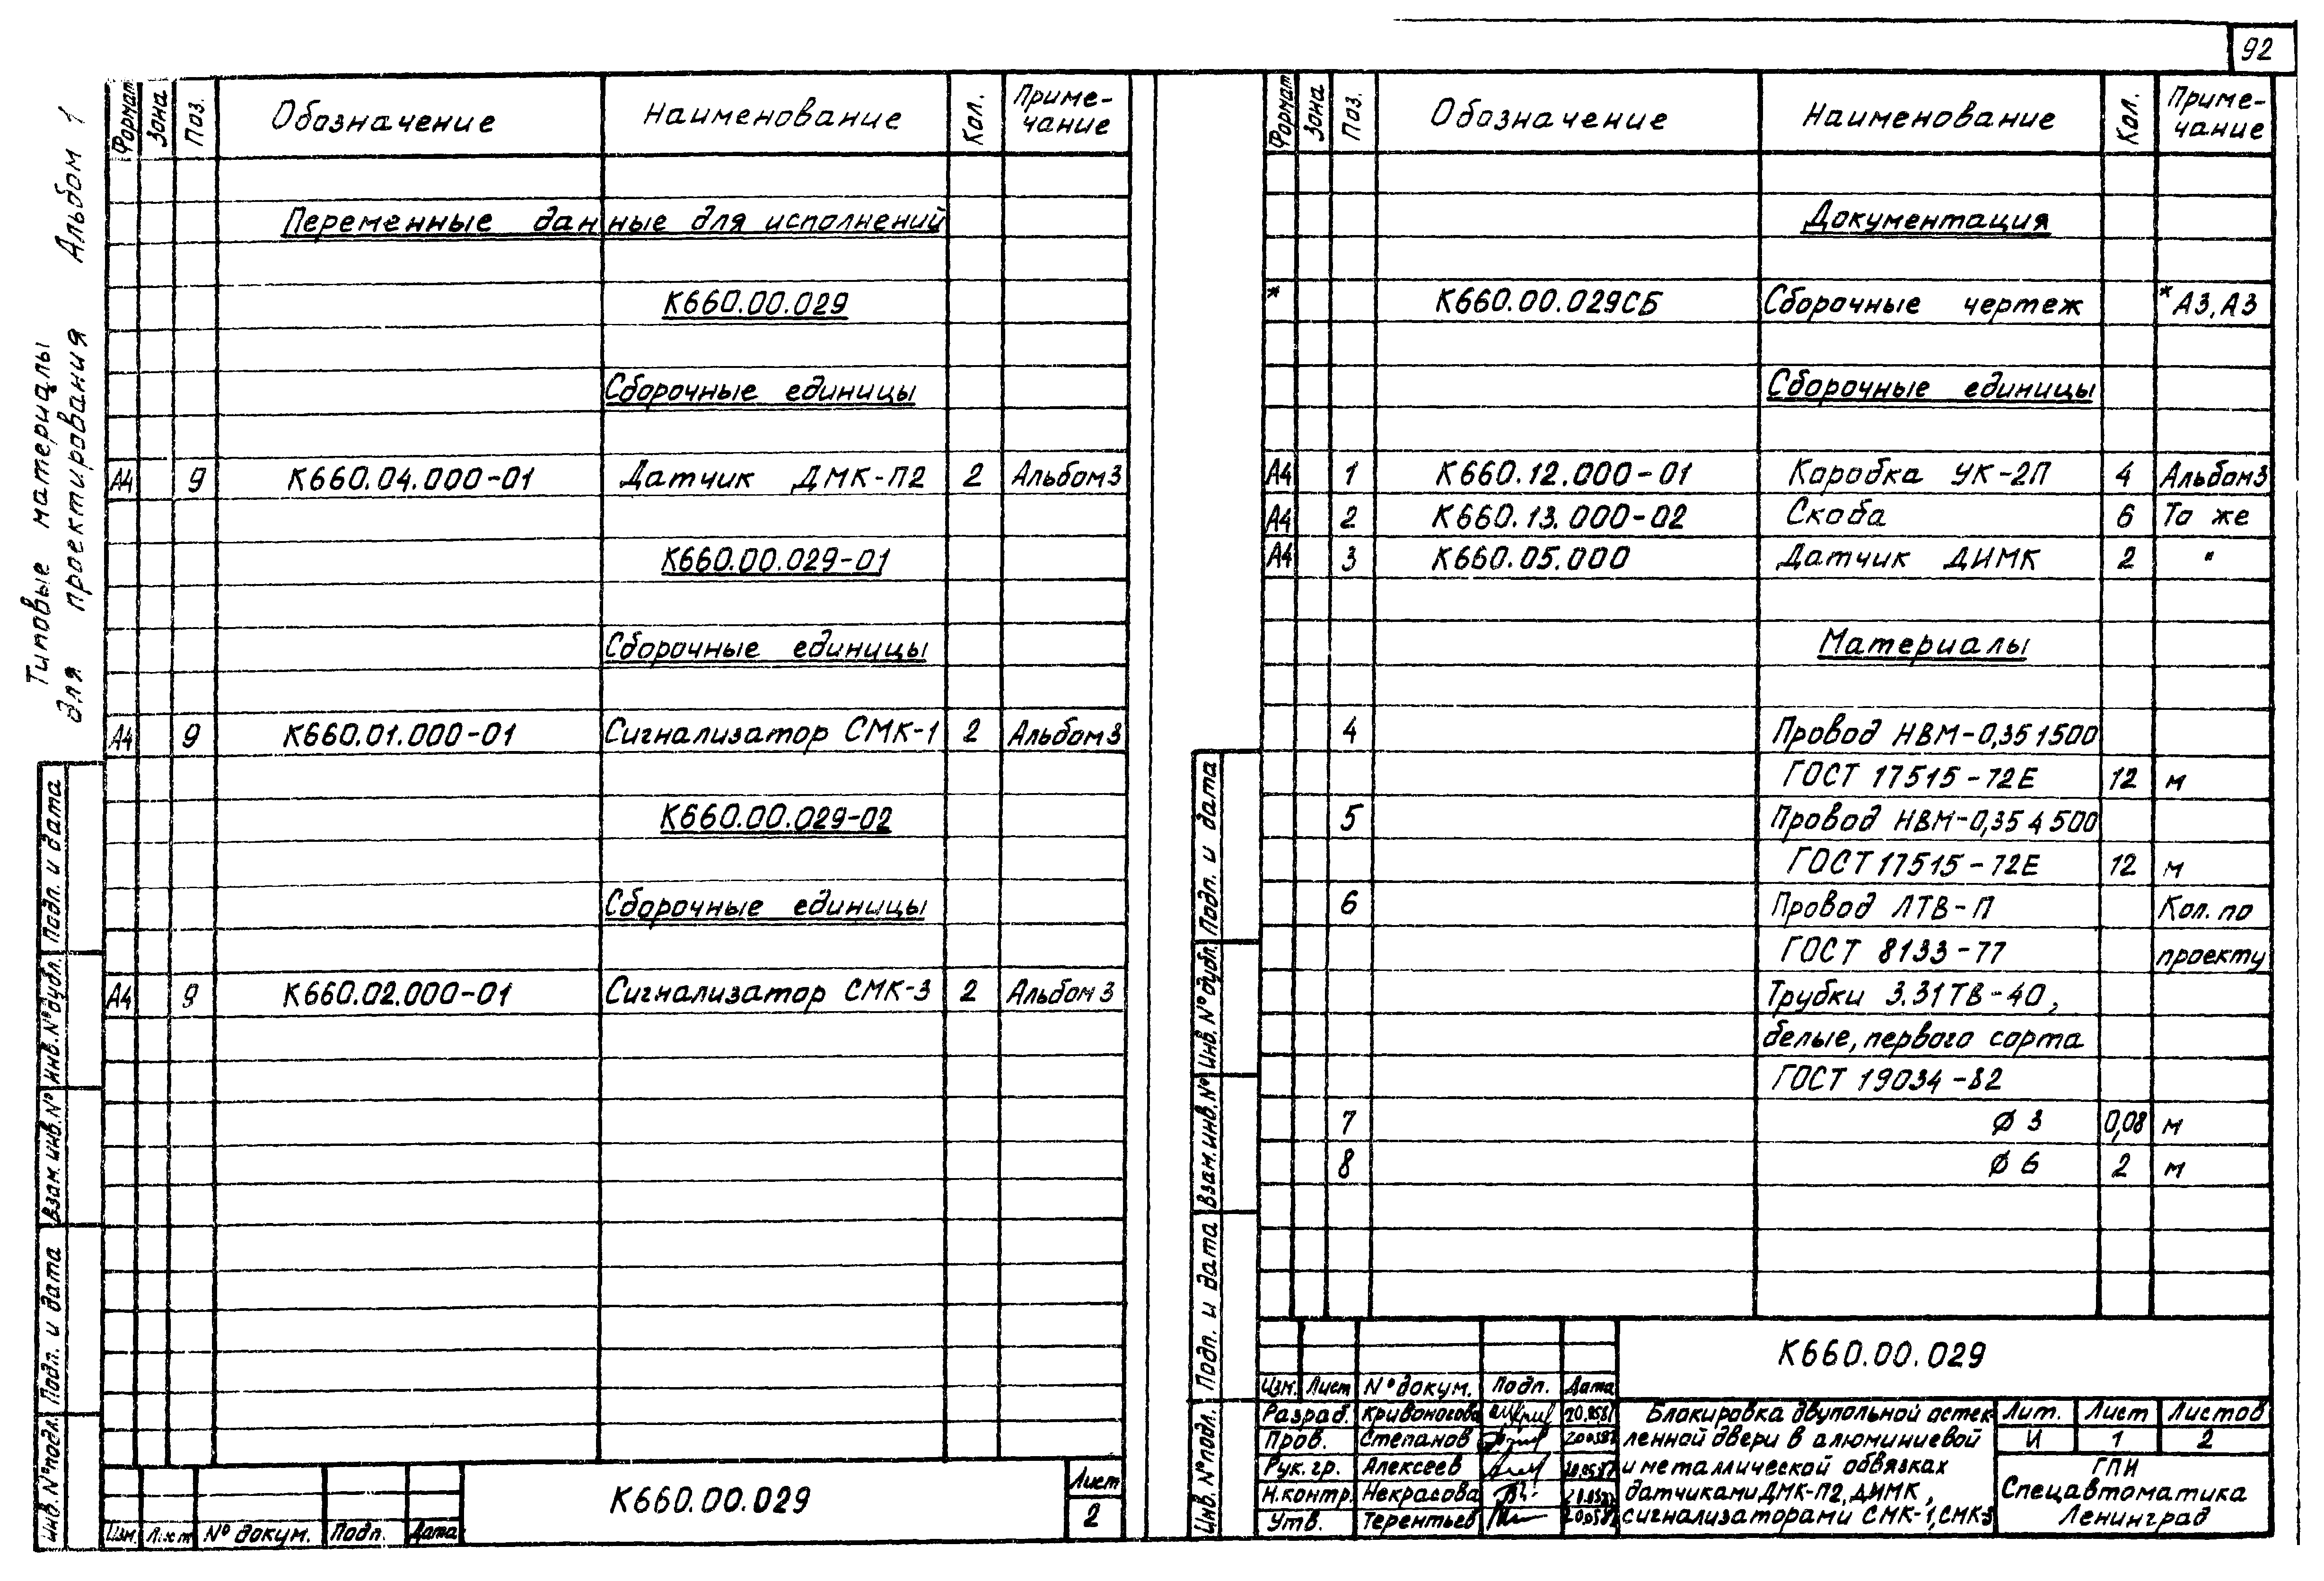 92
Типовые материалы
для проектирования Альбом 1
Формат Зона Поз. Обозначение Наименование Кол. Приме-
чание
Переменные данные для исполнений
К660.00.029
Сборочные единицы
А4 9 К660.04.000-01 Датчик ДМК-П2 2 Альбом 3
К660.00.029-01
Сборочные единицы
А4 9 К660.01.000-01 Сигнализатор СМК-1 2 Альбом 3
К660.00.029-02
Сборочные единицы
А4 9 К660.02.000-01 Сигнализатор СМК-3 2 Альбом 3
Инв. № подл. Подп. и дата Взам. инв. № Инв. № дубл. Подп. и дата
Изм. Лист № докум. Подп. Дата
К660.00.029
Лист
2
Формат Зона Поз. Обозначение Наименование Кол. Приме-
чание
Документация
* К660.00.029СБ Сборочные чертеж *А3, А3
Сборочные единицы
А4 1 К660.12.000-01 Коробка УК-2П 4 Альбом 3
А4 2 К660.13.000-02 Скоба 6 То же
А4 3 К660.05.000 Датчик ДИМК 2 "
Материалы
4 Провод НВМ-0,35 1 500
ГОСТ 17515-72Е 12 м
5 Провод НВМ-0,35 4 500
ГОСТ 17515-72Е 12 м
6 Провод ЛТВ-П Кол. по
ГОСТ 8133-77 проекту
Трубки 3.31ТВ-40,
белые, первого сорта
ГОСТ 19034-82
7 Ø 3 0,08 м
8 Ø 6 2 м
Инв. № подл. Подп. и дата Взам. инв. № Инв. № дубл. Подп. и дата
К660.00.029
Изм. Лист № докум. Подп. Дата
Разраб. Кривоногова
Пров. Степанов
Рук. гр. Алексеев
Н.контр. Некрасова
Утв. Терентьев
Блокировка двупольной остек-
ленной двери в алюминиевой
и металлической обвязках
датчиками ДМК-П2, ДИМК,
сигнализаторами СМК-1, СМК-3
Лит. Лист Листов
И 1 2
ГПИ
Спецавтоматика
Ленинград